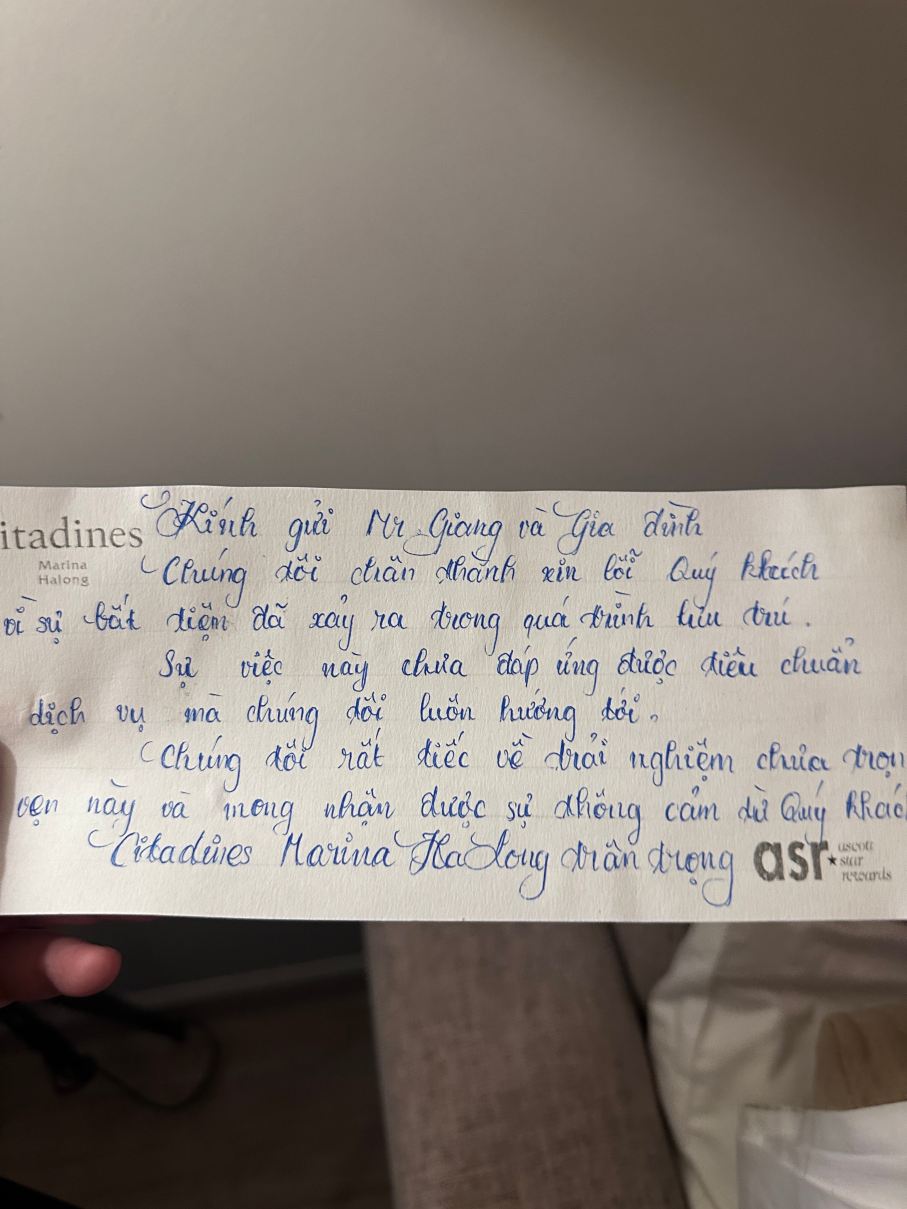 itadines Kính gửi Mr Giang và Gia đình
Marina
Halong
Chúng tôi chân thành xin lỗi Quý khách
vì sự bất tiện đã xảy ra trong quá trình lưu trú.
Sự việc này chưa đáp ứng được tiêu chuẩn
dịch vụ mà chúng tôi luôn hướng tới.
Chúng tôi rất tiếc về trải nghiệm chưa trọn
vẹn này và mong nhận được sự thông cảm từ Quý khác
Citadines Marina Ha Long trân trọng
asr ascott
star
rewards